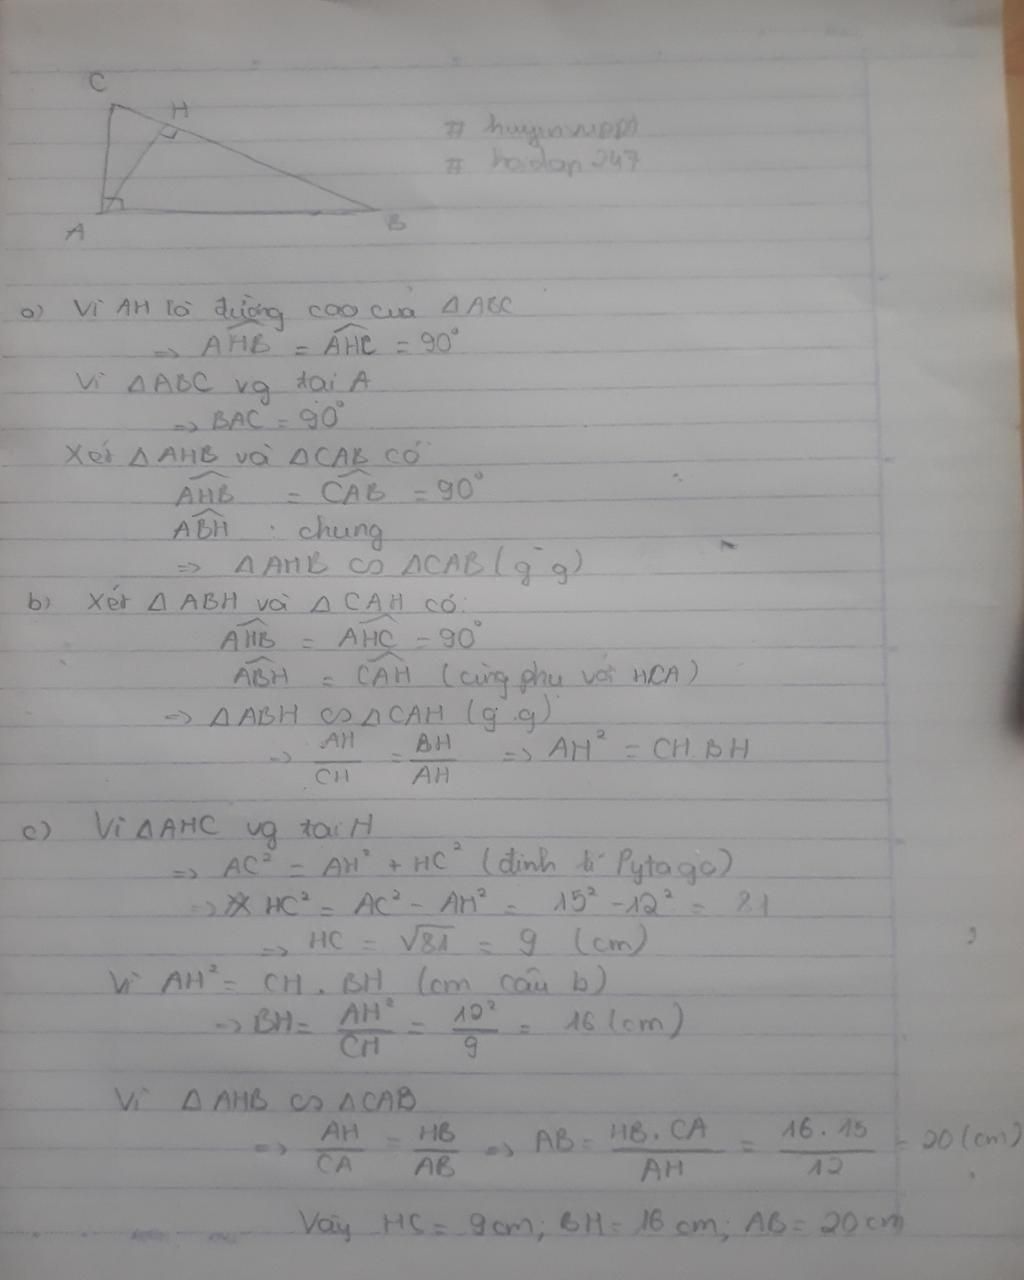 C
H
# hoidap247
A
B
a) Vì AH là đường cao của ΔABC
=> AHB = AHC = 90°
Vì ΔABC vg tại A
=> BAC = 90°
Xét ΔAHB và ΔCAB có
AHB = CAB = 90°
ABH : chung
=> ΔAHB ∽ ΔCAB (g.g)
b) Xét ΔABH và ΔCAH có:
AHB = AHC = 90°
ABH = CAH (cùng phụ với HCA)
=> ΔABH ∽ ΔCAH (g.g)
=> AH/CH = BH/AH => AH² = CH.BH
c) Vì ΔAHC vg tại H
=> AC² = AH² + HC² (định lí Pytago)
=> HC² = AC² - AH² = 15² - 12² = 81
=> HC = √81 = 9 (cm)
Vì AH² = CH . BH (cm câu b)
=> BH = AH²/CH = 12²/9 = 16 (cm)
Vì ΔAHB ∽ ΔCAB
=> AH/CA = HB/AB => AB = HB.CA/AH = 16.15/12 = 20 (cm)
Vậy HC = 9cm; BH = 16cm; AB = 20cm